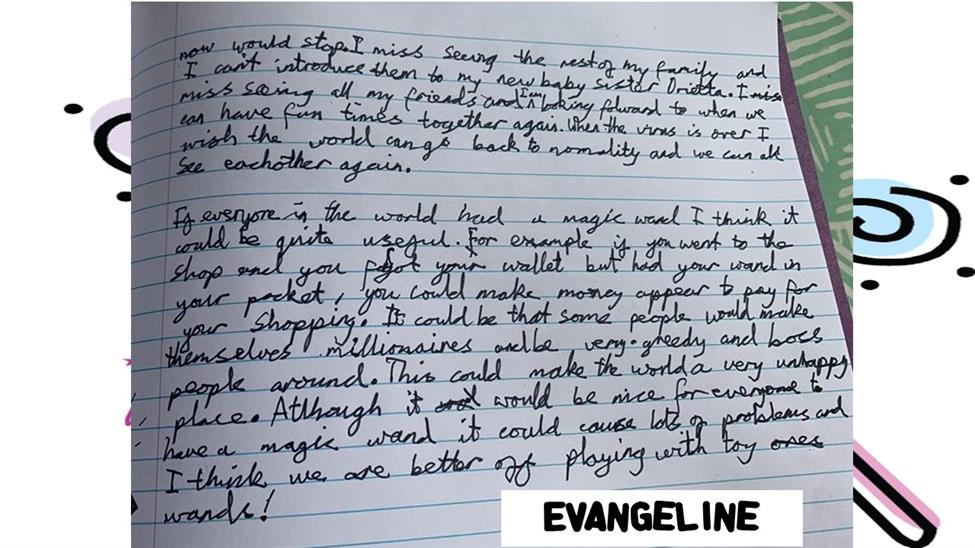 now would stop. I miss seeing the rest of my family and
I can't introduce them to my new baby sister Orietta. I miss
miss seeing all my friends and I am looking forward to when we
can have fun times together again. When the virus is over I
wish the world can go back to normality and we can all
see eachother again.
If everyone in the world had a magic wand I think it
could be quite useful. For example if you went to the
shop and you forgot your wallet but had your wand in
your pocket, you could make money appear to pay for
your shopping. It could be that some people would make
themselves millionaires and be very greedy and boss
people around. This could make the world a very unhappy
place. Atlhough it would be nice for everyone to
have a magic wand it could cause lots of problems and
I think we are better off playing with toy ones
wands!
EVANGELINE